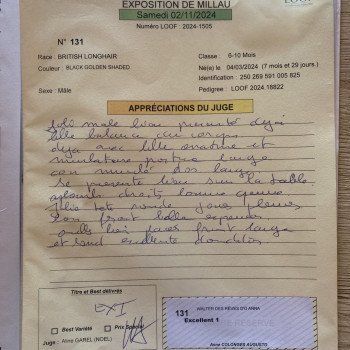 EXPOSITION DE MILLAU
Samedi 02/11/2024
Numéro LOOF : 2024-1505
LOOF
N° 131
Race : BRITISH LONGHAIR
Classe : 6-10 Mois
Couleur : BLACK GOLDEN SHADED
Né(e) le 04/03/2024 (7 mois et 29 jours)
Identification : 250 269 591 005 825
Sexe : Mâle
Pedigree : LOOF 2024.18822
APPRÉCIATIONS DU JUGE
male bien présenté déjà
belle balance du corps
déjà avec belle ossature et
musculature poitrine large
cou musclé dos large
se présente bien sur la table
aplombs droits bonne queue
tête ronde joues pleines
bon front belle
oreilles bien front large
et rond excellente
Titre et Best délivrés
EX1
Best Variété
Prix Spécial
Juge : Aline GAREL (NOEL)
131
WALTER DES RÊVES D'ANNA
Excellent 1
Anne COLONGES AUGUSTO